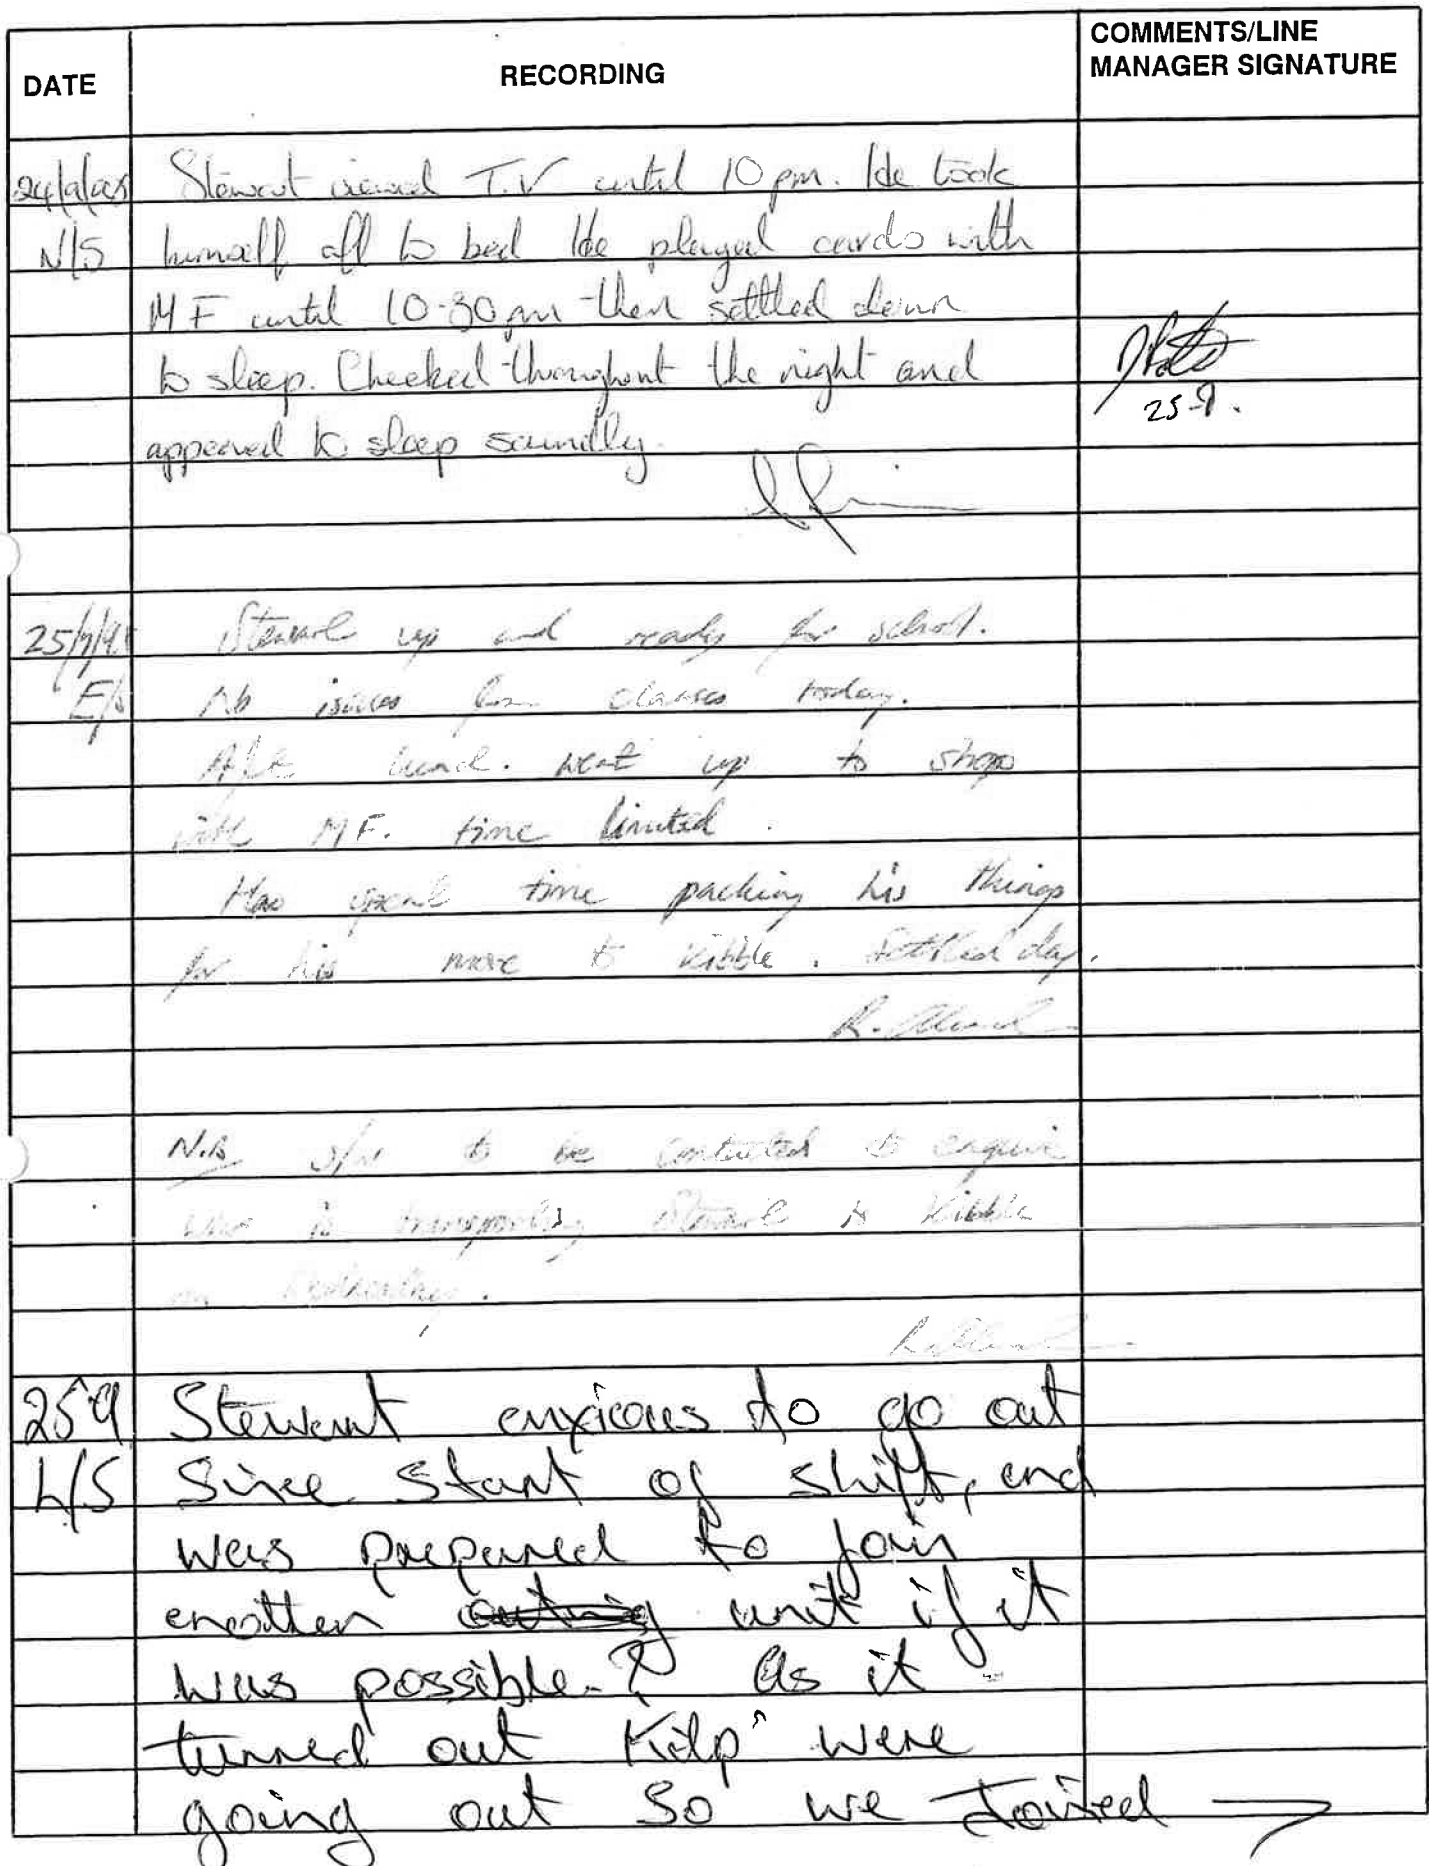 DATE RECORDING COMMENTS/LINE MANAGER SIGNATURE
Stewart viewed T.V until 10 pm. He took
N/S himself off to bed He played cards with
MF until 10-30 pm then settled down
to sleep. Checked throughout the night and
25-9.
appeared to sleep soundly.
Stewart up and ready for school.
E/S No issues from classes today.
went up to shop
with MF. time limited.
Has spent time packing his things
for his move to Kibble. Settled day.
N.B s/w to be contacted to enquire
who is transporting Stewart to Kibble
on
25-9 Stewart anxious to go out
L/S Since start of shift, and
was prepared to join
another unit if it
was possible.? As it
turned out Kilp' were
going out so we joined →